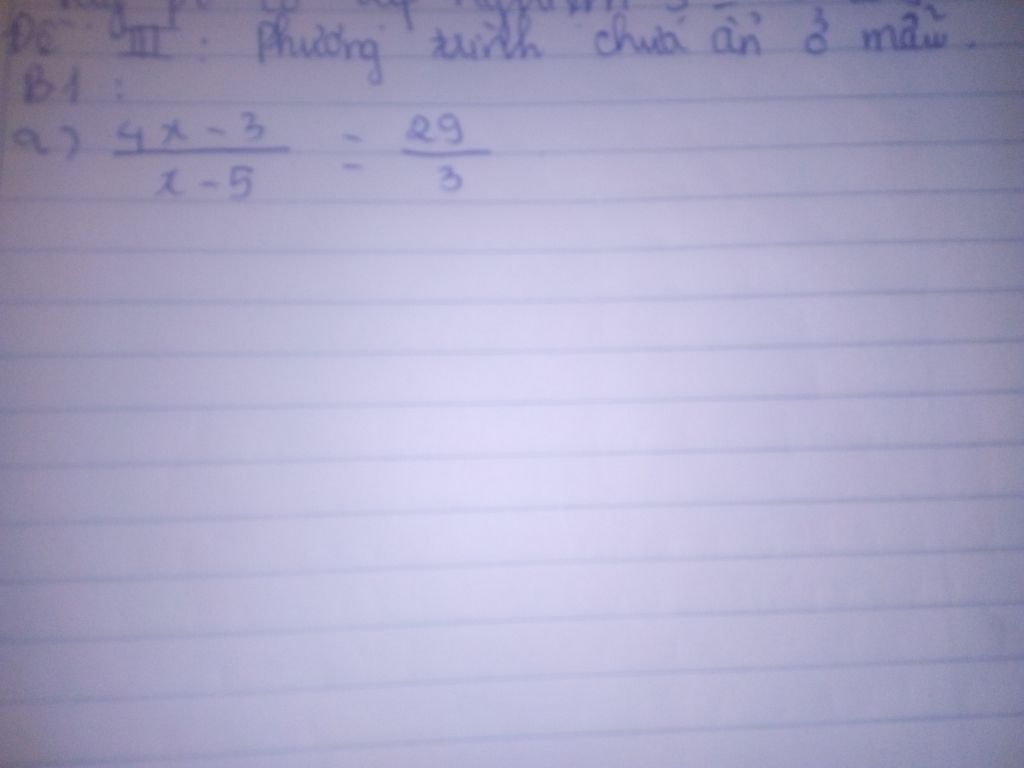 Đề III : Phương trình chứa ẩn ở mẫu.
B1 :
a) 4x - 3 / x - 5 = 29 / 3